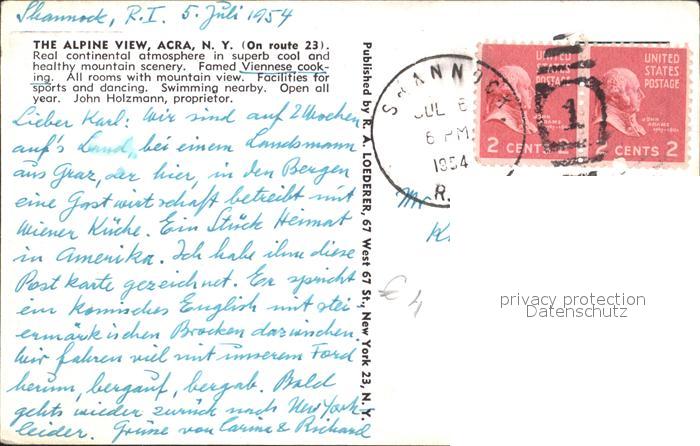 Shannock, R.I. 5. Juli 1954
THE ALPINE VIEW, ACRA, N. Y. (On route 23).
Real continental atmosphere in superb cool and
healthy mountain scenery. Famed Viennese cook-
ing. All rooms with mountain view. Facilities for
sports and dancing. Swimming nearby. Open all
year. John Holzmann, proprietor.
Lieber Karl: Wir sind auf 2 Wochen
auf's Land, bei einem Landsmann
aus Graz, der hier, in den Bergen
eine Gastwirtschaft betreibt mit
Wiener Küche. Ein Stück Heimat
in Amerika. Ich habe ihm diese
Postkarte gezeichnet. Er spricht
ein komisches English mit stei-
ermärkischen Brocken dazwischen.
Wir fahren viel mit unserem Ford
herum, bergauf, bergab. Bald
gehts wieder zurück nach New York-
leider. Grüße von Carina & Richard
Published by R. A. LOEDERER, 67 West 67 St., New York 23, N. Y.
SHANNOCK
JUL 6
6 PM
1954
R.
UNITED
STATES
POSTAGE
JOHN
ADAMS
2 CENTS
1
UNITED
STATES
POSTAGE
JOHN
ADAMS
2 CENTS 2
Mr
K
€ 4
privacy protection
Datenschutz